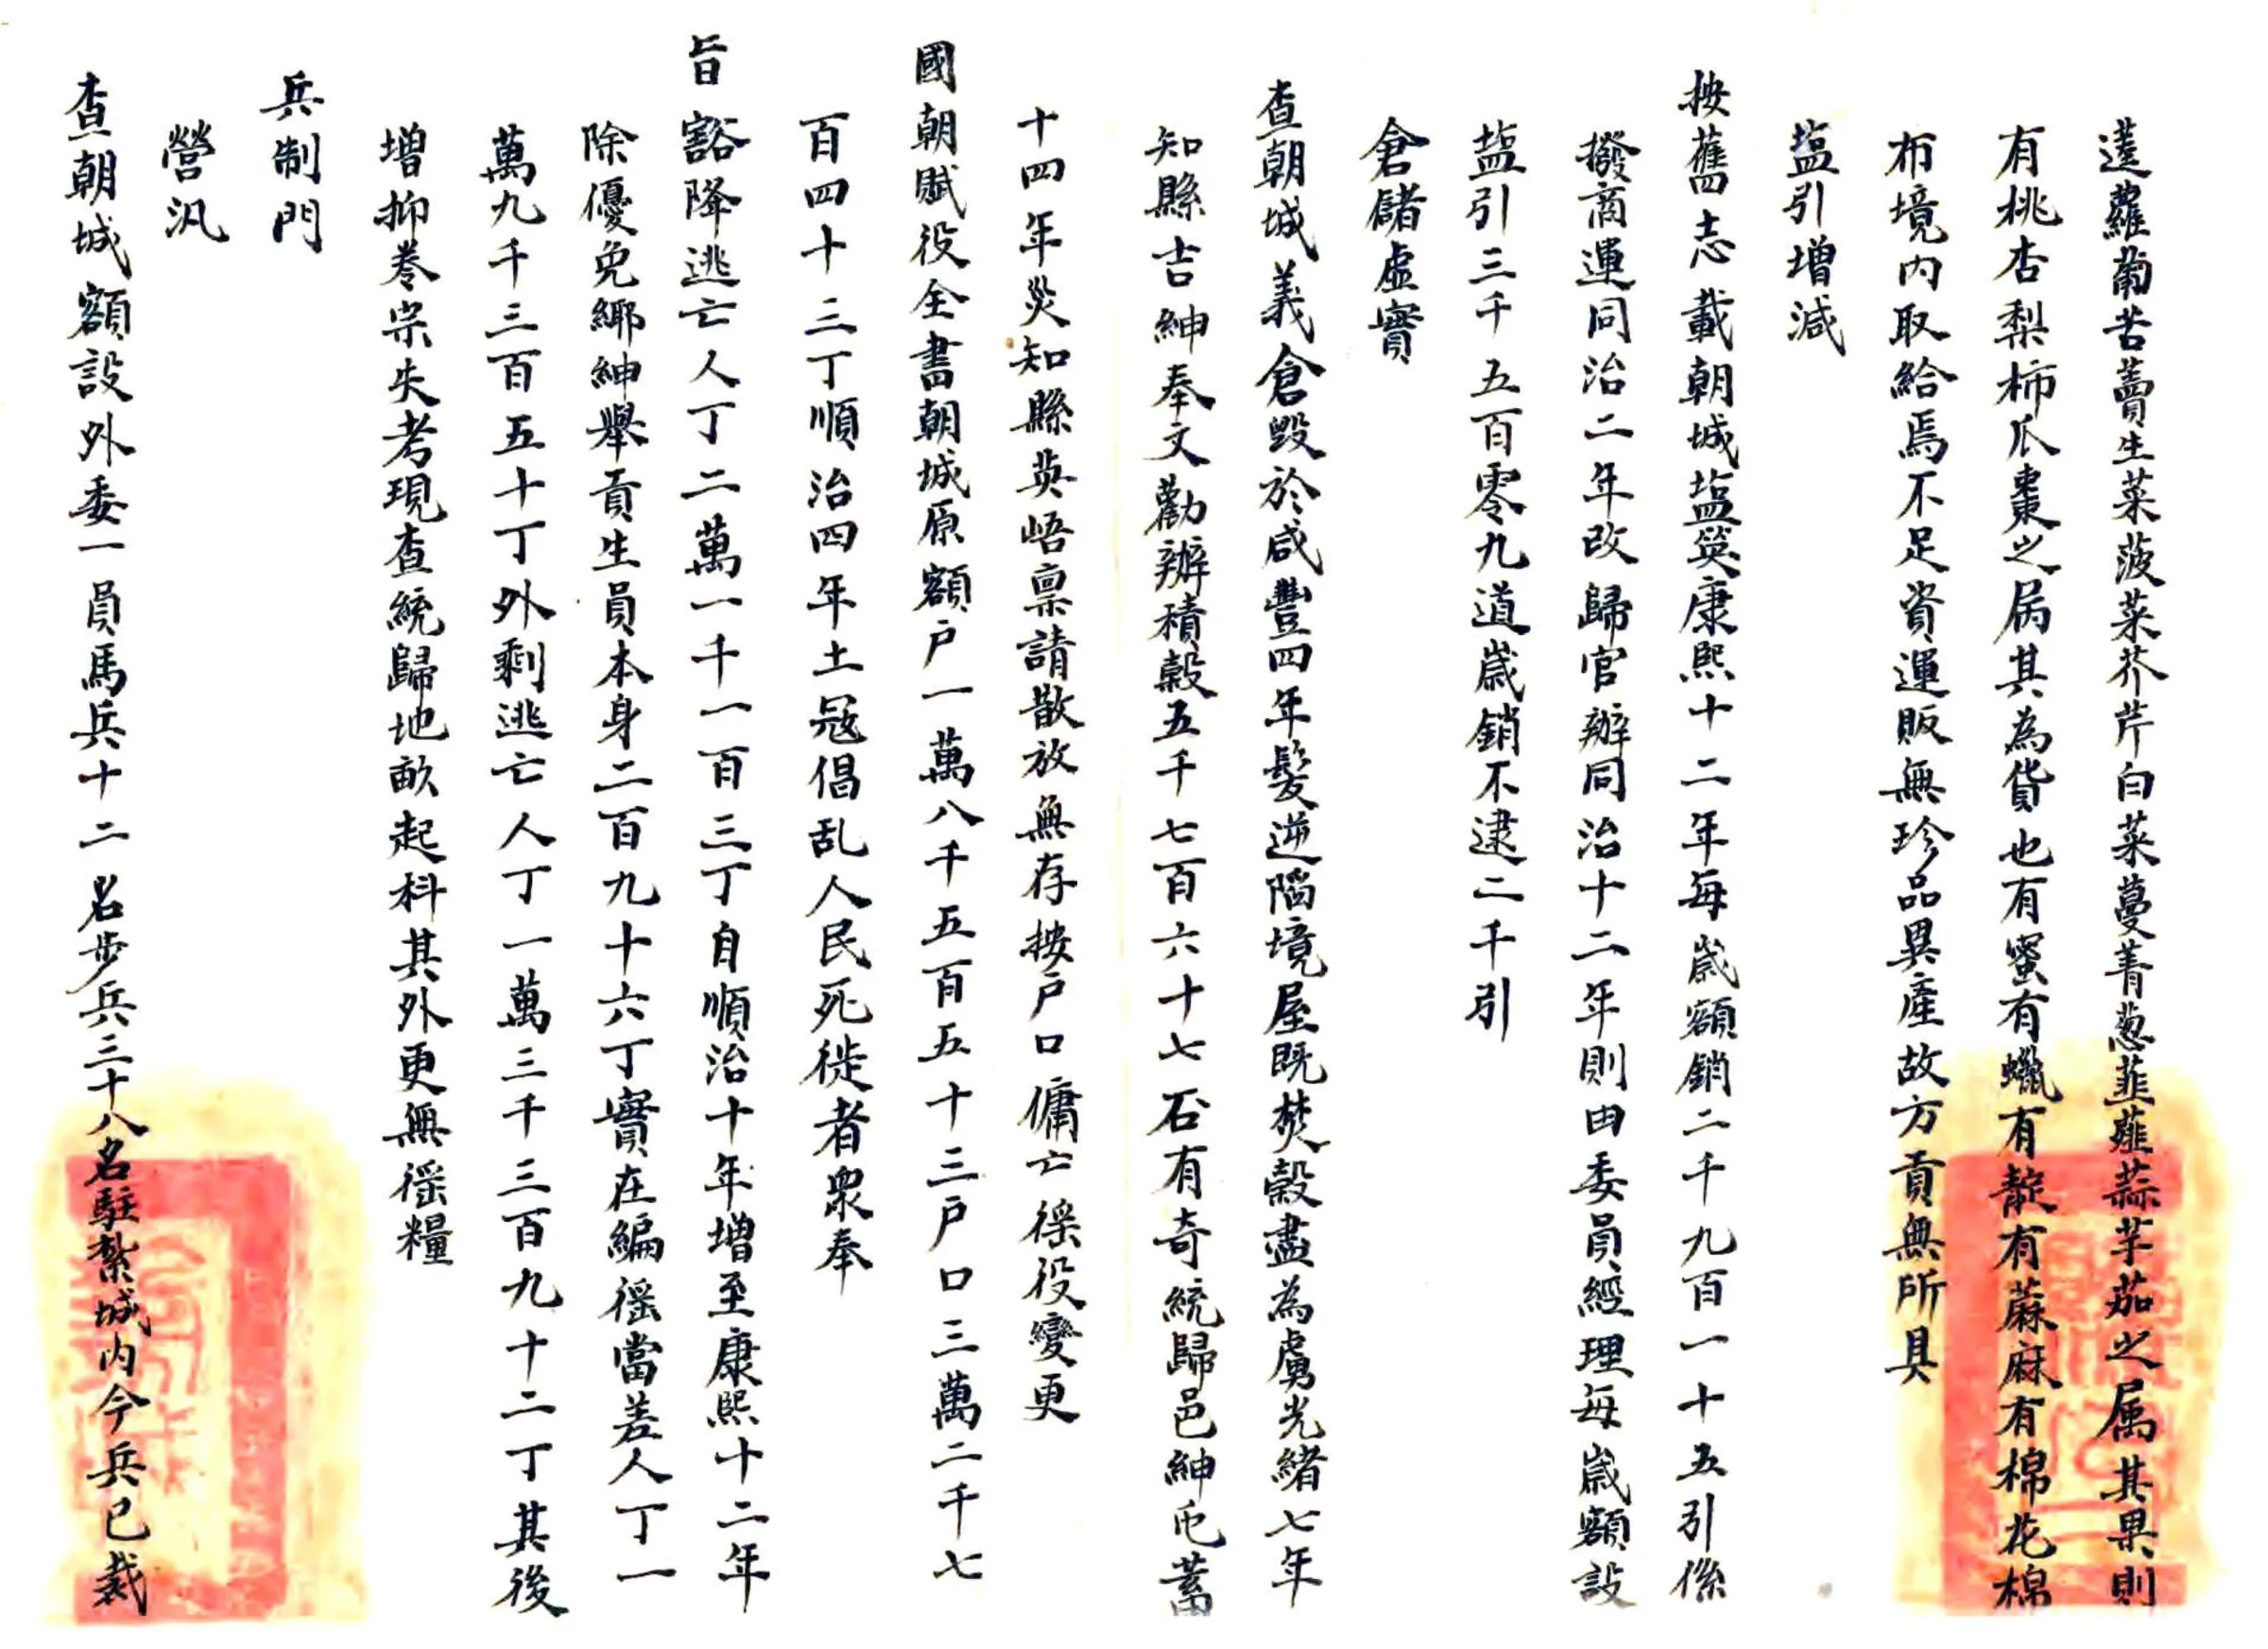 薘蘿蔔苦蕒生菜菠菜芥芹白菜蔓菁葱韮薤蒜芋茄之属其果則
有桃杏梨柿瓜棗之屬其為貨也有蜜有蠟有靛有蔴麻有棉花棉
布境内取給焉不足資運販無珍品異產故方貢無所具
塩引增減
按舊志載朝城塩筴康熙十二年每歲額銷二千九百一十五引係
撥商運同治二年改歸官辦同治十二年則由委員經理每歲額設
塩引三千五百零九道歲銷不逮二千引
倉儲虛實
查朝城義倉毀於咸豐四年髮逆陷境屋既焚穀盡為虜光緒七年
知縣吉紳奉文勸辦積穀五千七百六十七石有奇統歸邑紳屯蓄
十四年災知縣英峿稟請散放無存按户口傭亡徭役變更
國朝賦役全書朝城原額户一萬八千五百五十三户口三萬二千七
百四十三丁順治四年土冦倡乱人民死徙者衆奉
旨豁降逃亡人丁二萬一千一百三丁自順治十年增至康熙十二年
除優免鄉紳舉貢生員本身二百九十六丁實在編徭當差人丁一
萬九千三百五十丁外剩逃亡人丁一萬三千三百九十二丁其後
增抑卷宗失考現查統歸地畝起科其外更無徭糧
兵制門
營汛
查朝城額設外委一員馬兵十二名步兵三十八名駐紮城内今兵已裁